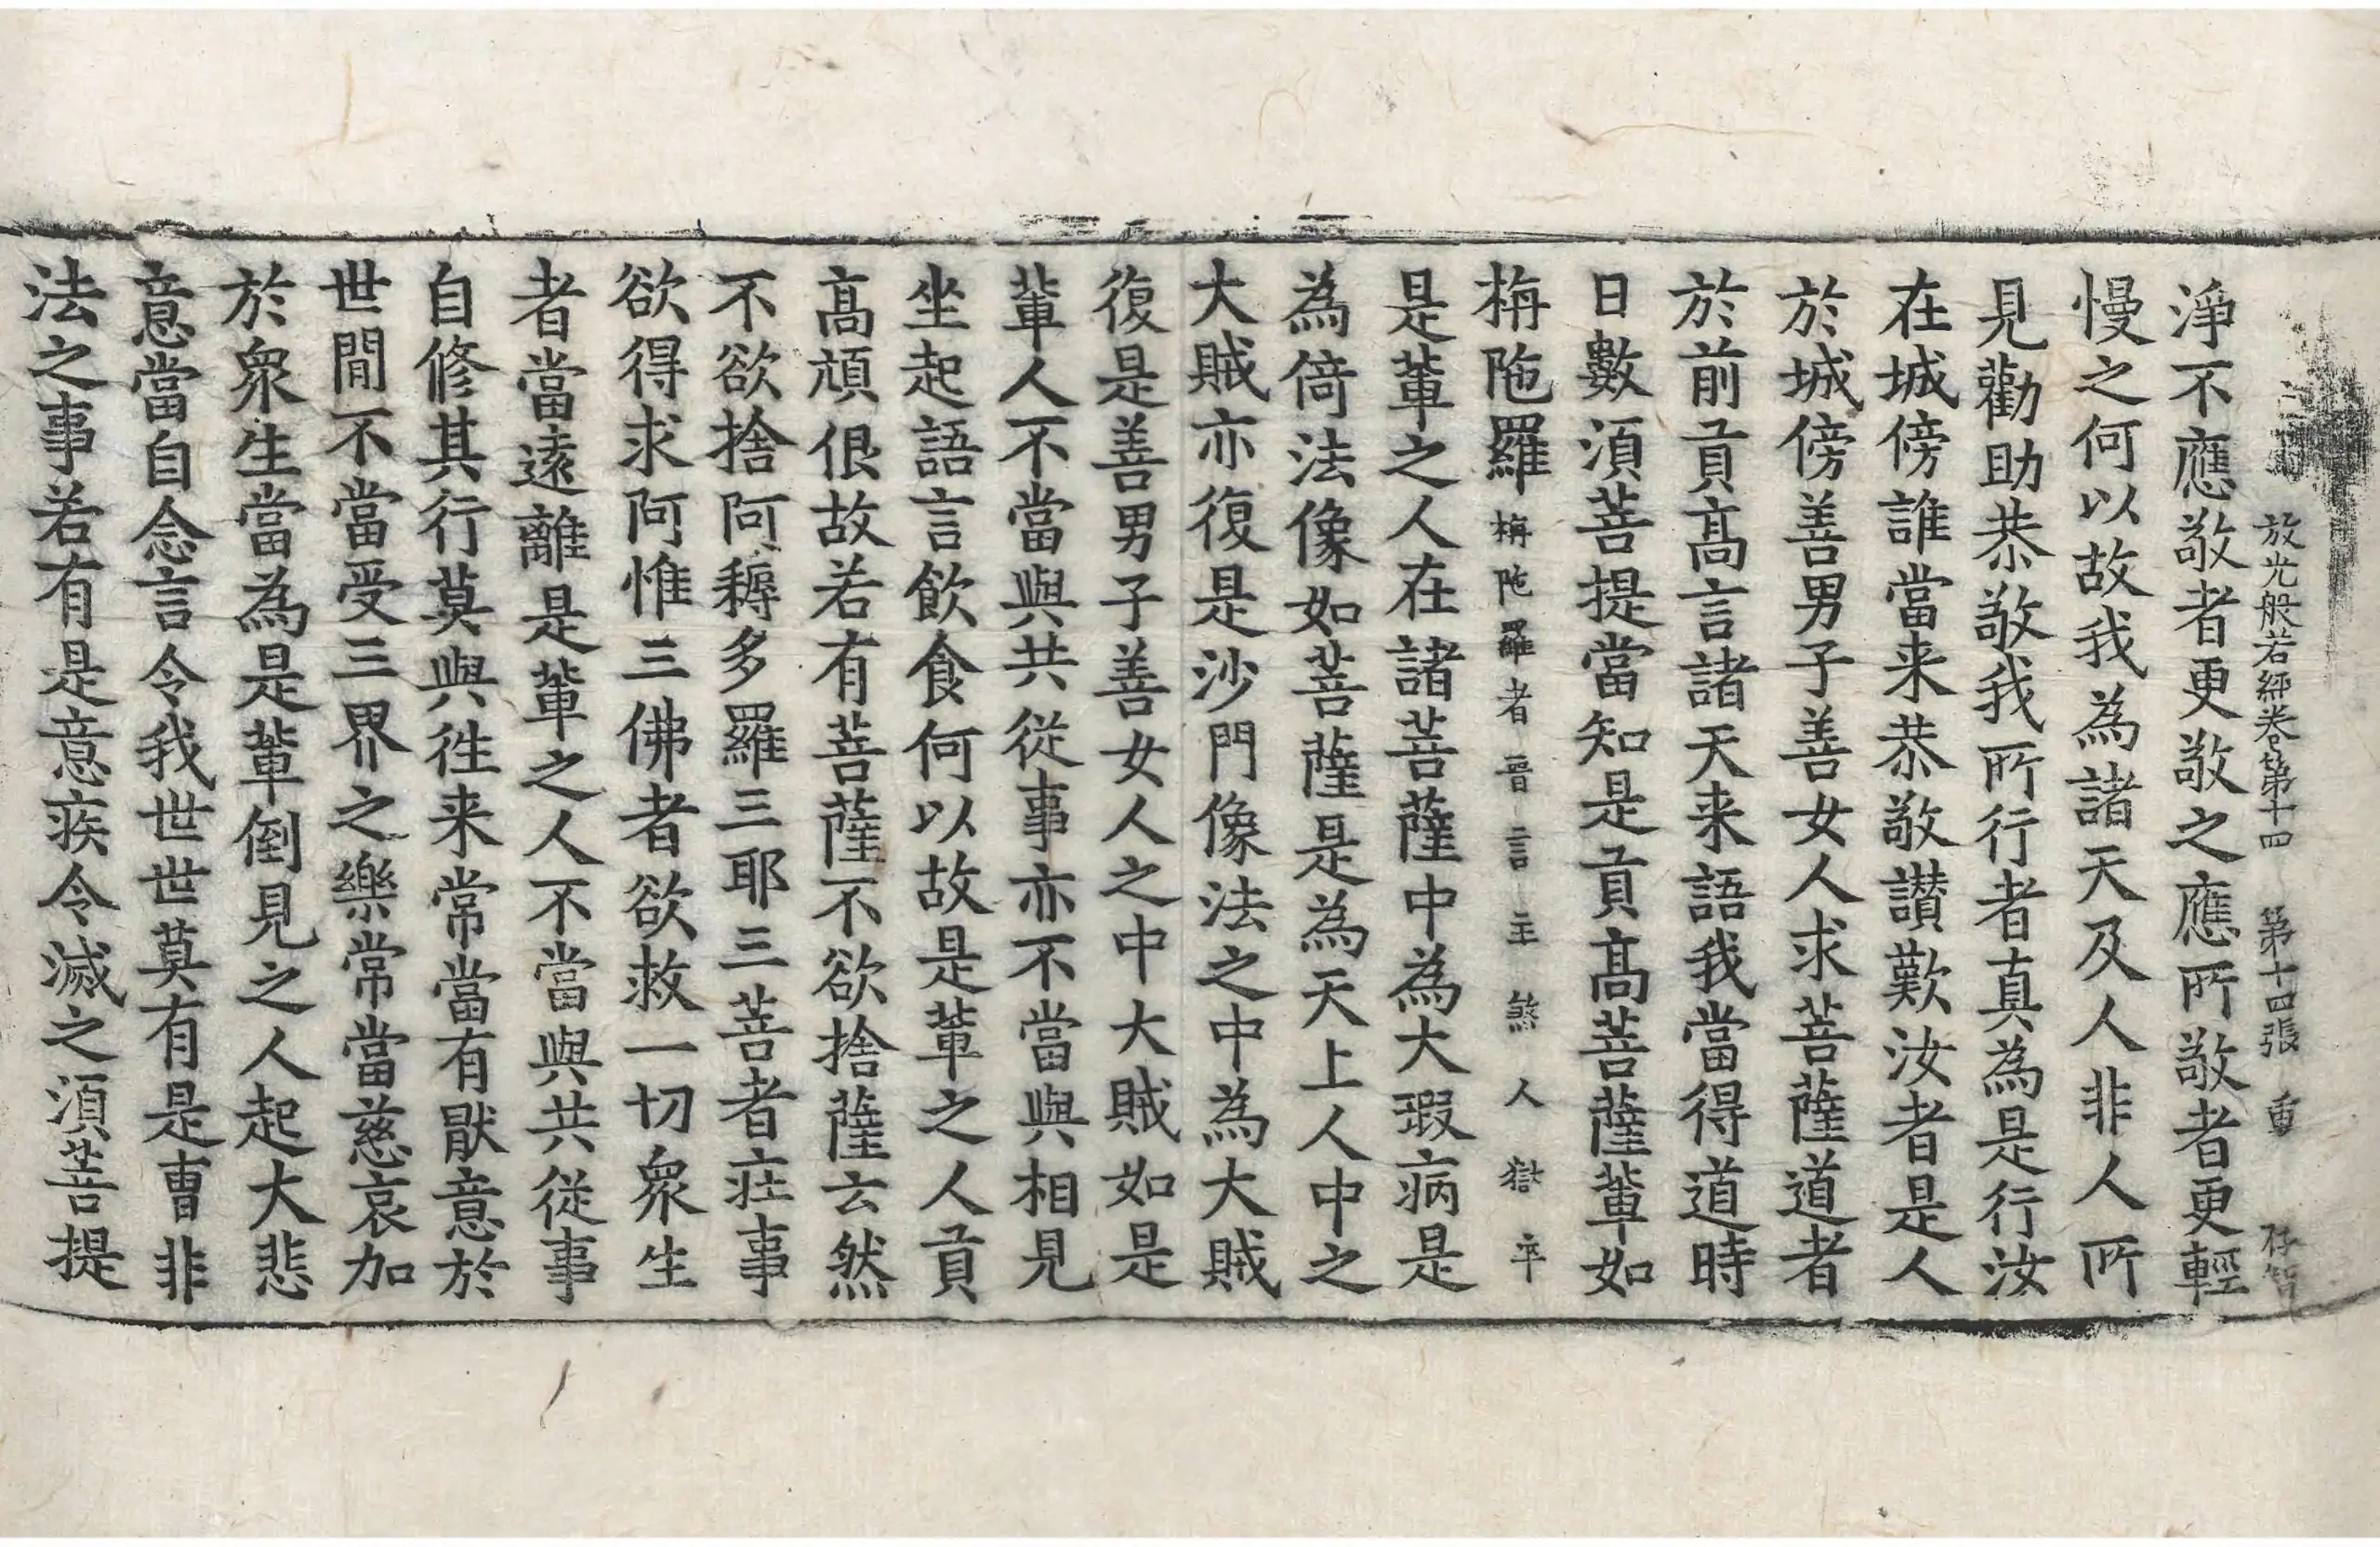 放光般若經卷第十四 第十四張 重
淨不應敬者更敬之應所敬者更輕
慢之何以故我為諸天及人非人所
見勸助恭敬我所行者真為是行汝
在城傍誰當来恭敬讃歎汝者是人
於城傍善男子善女人求菩薩道者
於前貢髙言諸天来語我當得道時
日數湏菩提當知是貢髙菩薩軰如
栴陁羅栴陁羅者晉言主煞人獄卒
是軰之人在諸菩薩中為大瑕病是
為倚法像如菩薩是為天上人中之
大賊亦復是沙門像法之中為大賊
復是善男子善女人之中大賊如是
軰人不當與共從事亦不當與相見
坐起語言飲食何以故是軰之人貢
髙頑佷故若有菩薩不欲捨薩云然
不欲捨阿耨多羅三耶三菩者疰事
欲得求阿惟三佛者欲救一切衆生
者當遠離是軰之人不當與共從事
自修其行莫與徃来常當有猒意於
世間不當受三界之樂常當慈哀加
於衆生當為是軰倒見之人起大悲
意當自念言令我世世莫有是曺非
法之事若有是意疾令滅之湏菩提